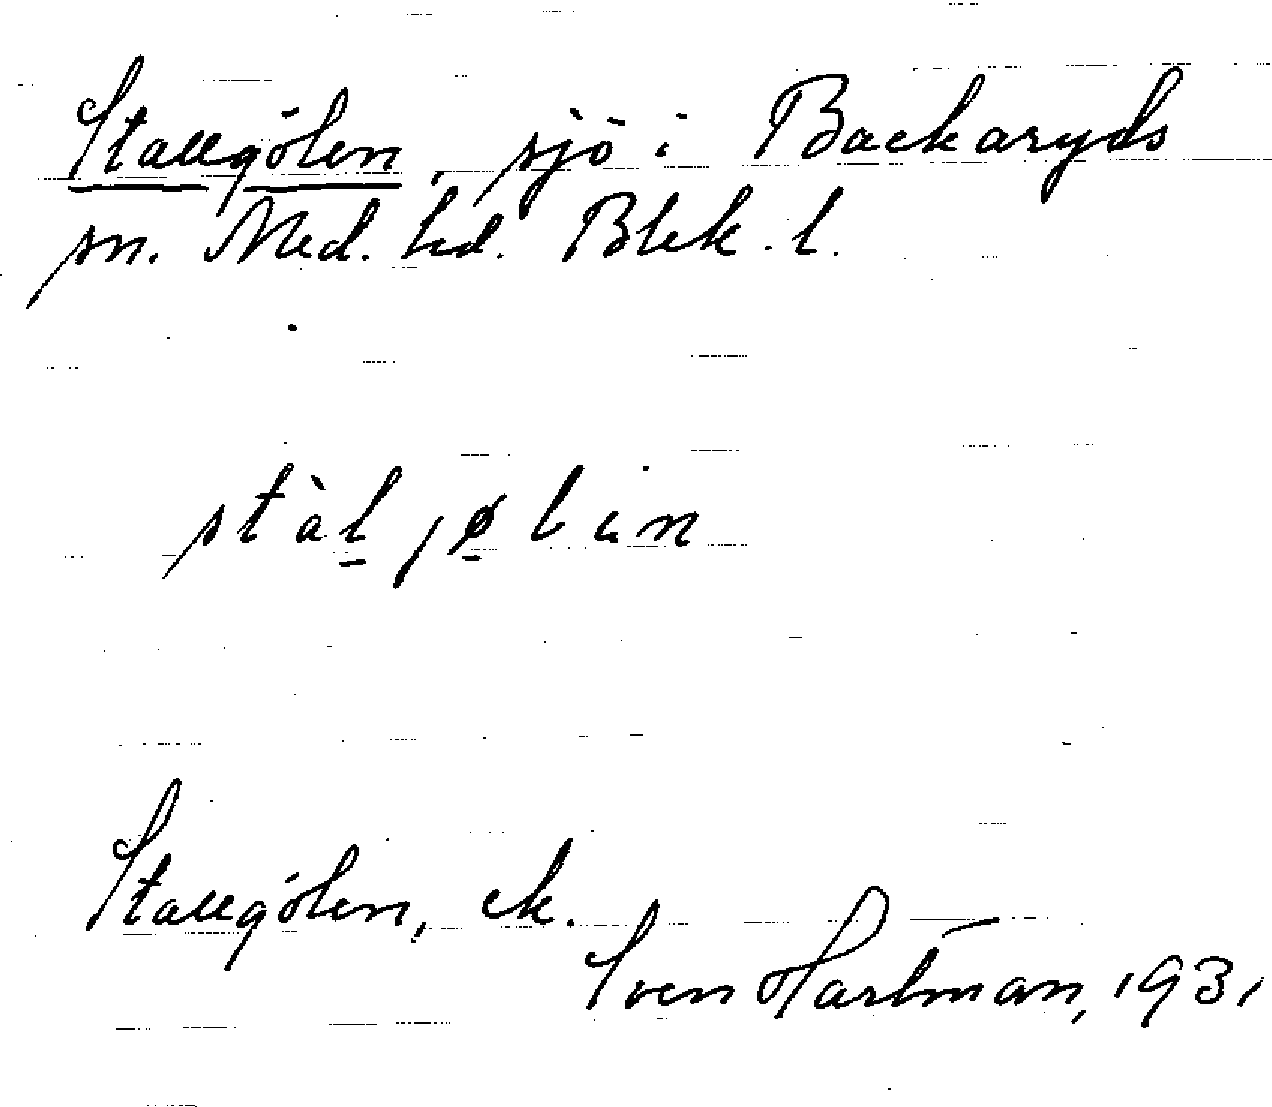 Stallgölen, sjö i Backaryds
sn. Med. hd. Blek. l.
stàl jøl en
Stallgölen, ek.
Sven Hartman, 1931